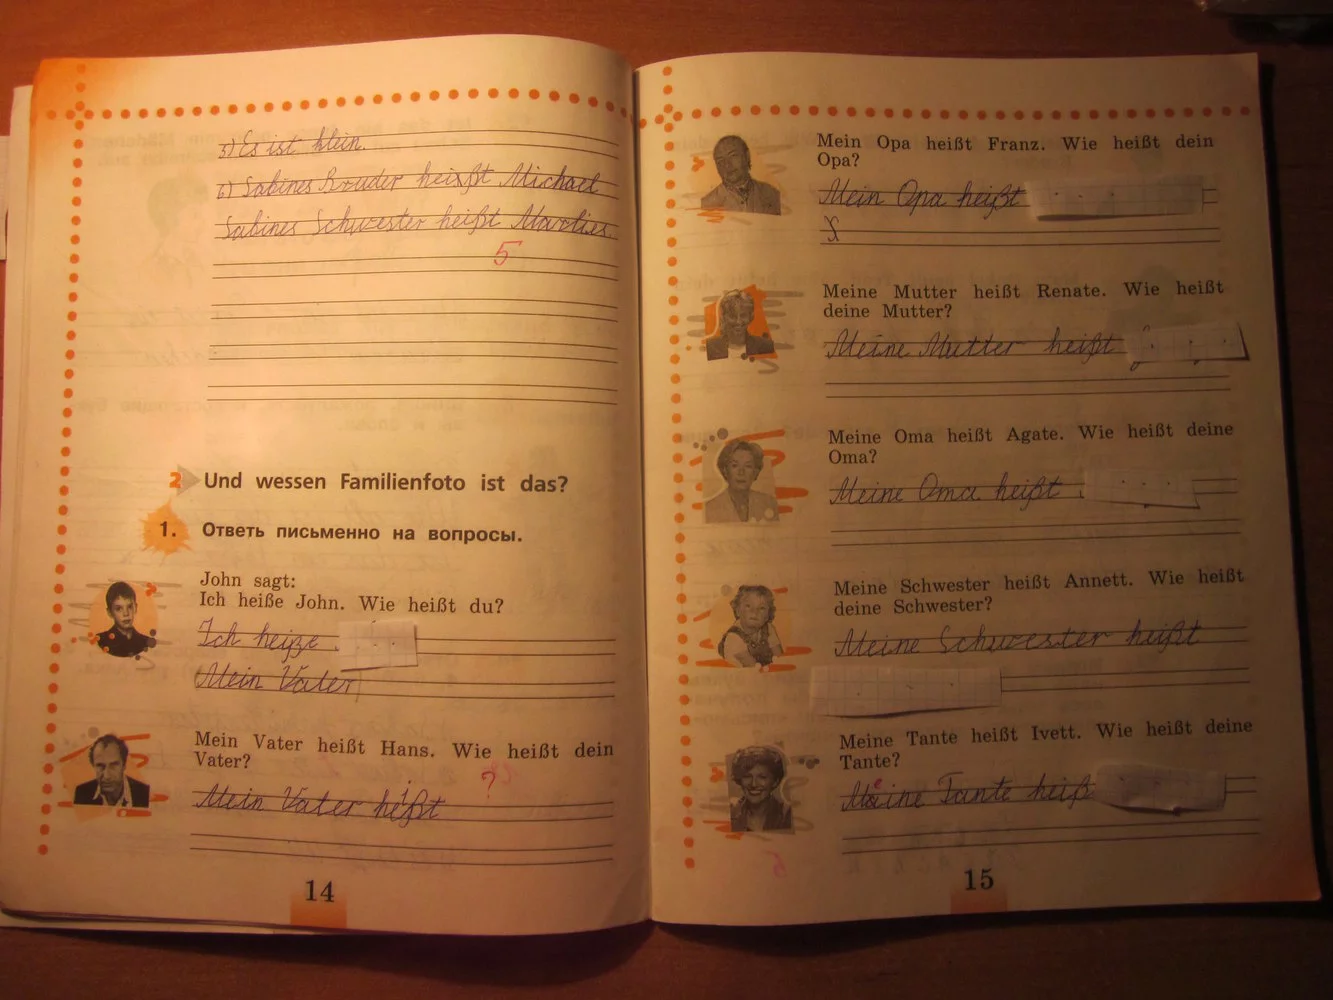 5) Es ist klein.
6) Sabines Bruder heißt Michael
Sabines Schwester heißt Marlies.
5
2 Und wessen Familienfoto ist das?
1. Ответь письменно на вопросы.
John sagt:
Ich heiße John. Wie heißt du?
Ich heiße
Mein Vater
Mein Vater heißt Hans. Wie heißt dein
Vater?
?
Mein Vater heißt
14
Mein Opa heißt Franz. Wie heißt dein
Opa?
Mein Opa heißt
Meine Mutter heißt Renate. Wie heißt
deine Mutter?
Meine Mutter heißt
Meine Oma heißt Agate. Wie heißt deine
Oma?
Meine Oma heißt
Meine Schwester heißt Annett. Wie heißt
deine Schwester?
Meine Schwester heißt
Meine Tante heißt Ivett. Wie heißt deine
Tante?
Meine Tante heiß
5
15